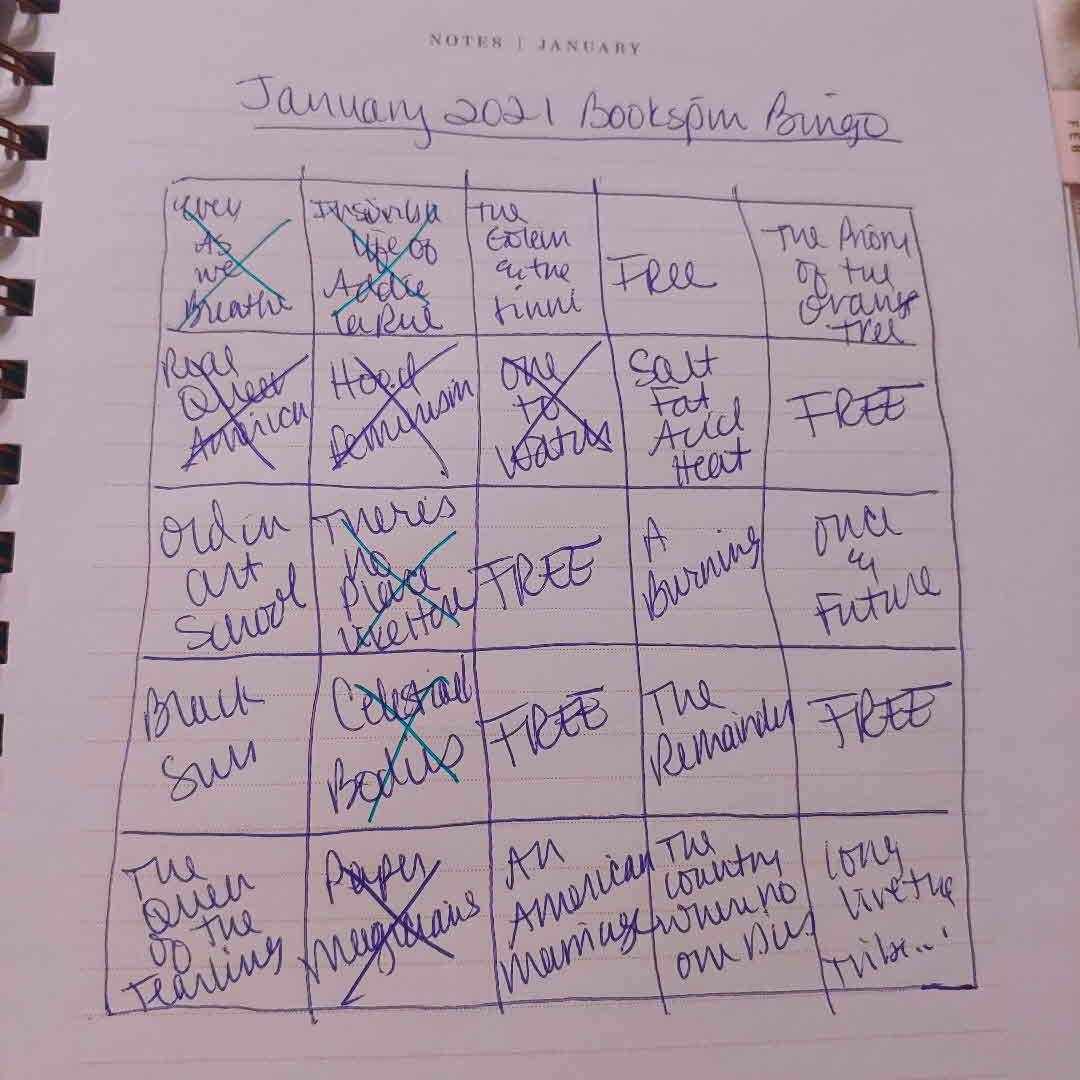 NOTES | JANUARY
January 2021 Bookspin Bingo
Even
As
We
Breathe
Invisible
Life of
Addie
LaRue
The
Golem
& the
Jinni
FREE
The Priory
of the
Orange
Tree
Real
Queer
America
Hood
Feminism
One
to
Watch
Salt
Fat
Acid
Heat
FREE
Old in
Art
School
There's
no
Place
Like Home
FREE
A
Burning
Once
&
Future
Black
Sun
Celestial
Bodies
FREE
The
Remainder
FREE
The
Queen
of the
Tearling
Paper
Magicians
An
American
Marriage
The
Country
where no
one Dies
Long
live the
tribe...
FEB